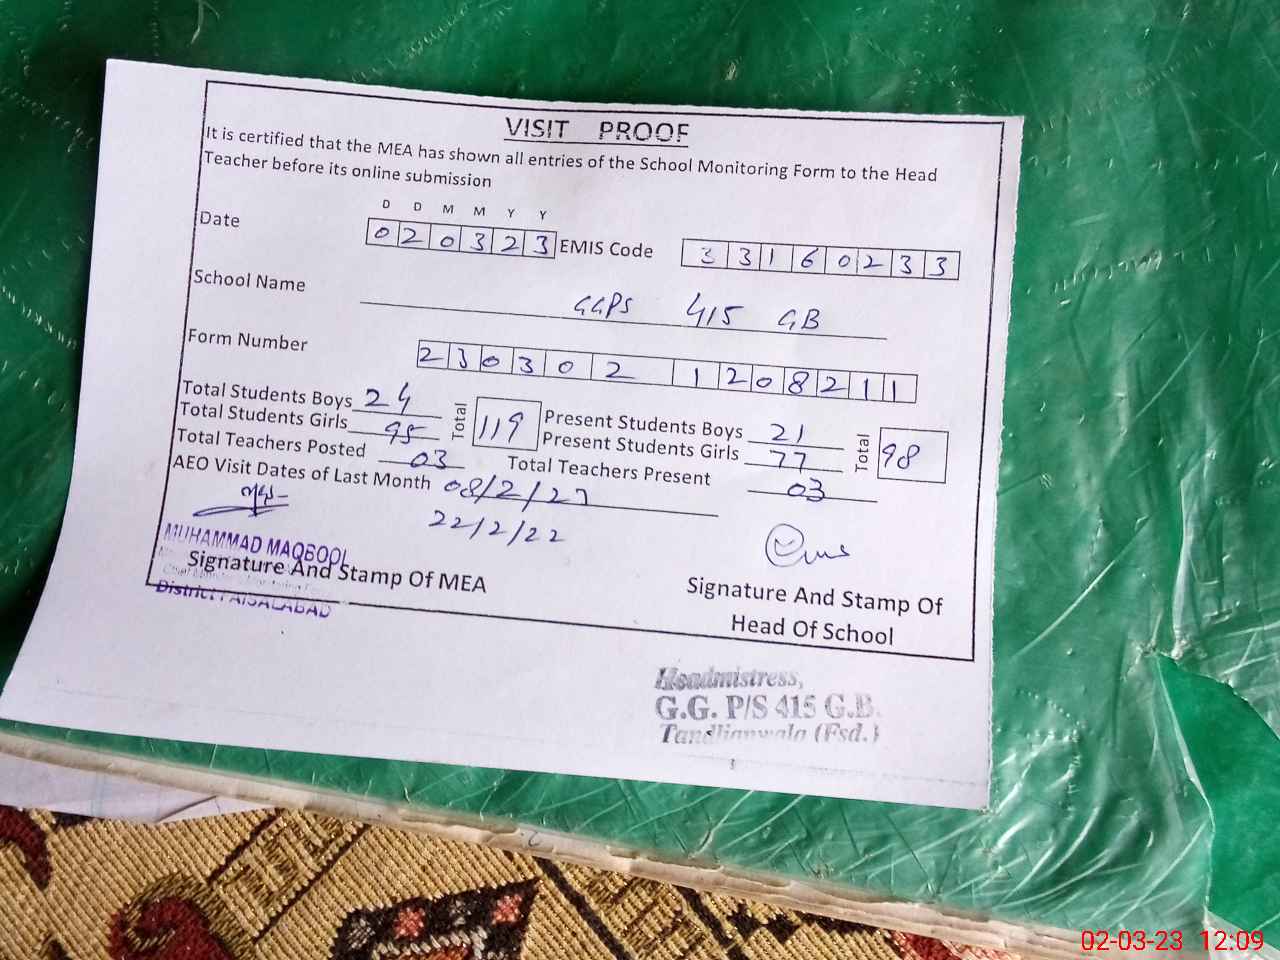 VISIT PROOF
It is certified that the MEA has shown all entries of the School Monitoring Form to the Head
Teacher before its online submission
D D M M Y Y
Date 020323 EMIS Code 33160233
School Name GGPS 415 GB
Form Number 230302 1208211
Total Students Boys 24 Present Students Boys 21
Total Students Girls 95 Total 119 Present Students Girls 77 Total 98
Total Teachers Posted 03 Total Teachers Present 03
AEO Visit Dates of Last Month 08/2/
22/2/22
MUHAMMAD MAQBOOL
Signature And Stamp Of MEA
District FAISALABAD
Signature And Stamp Of
Head Of School
Headmistress,
G.G. P/S 415 G.B.
Tandlianwala (Fsd.)
02-03-23 12:09